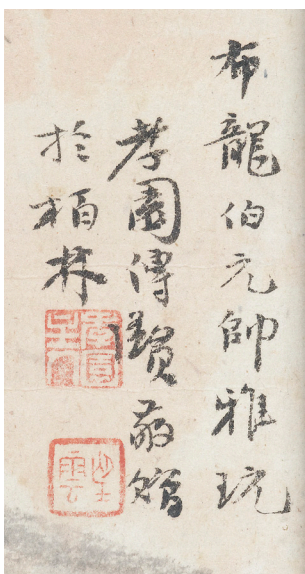 布龍伯元帥雅玩
孝園傅贤敬贈
於柏林